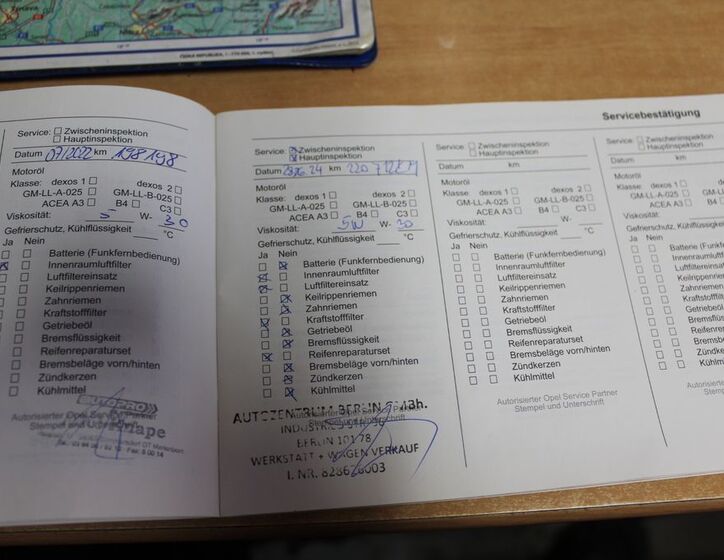 ČESKÁ REPUBLIKA
Servicebestätigung
Service: Zwischeninspektion
Hauptinspektion
Datum 07/2022 km 198198
Motoröl
Klasse: dexos 1 dexos 2
GM-LL-A-025 GM-LL-B-025
ACEA A3 B4 C3
Viskosität: 5 W- 30
Gefrierschutz, Kühlflüssigkeit °C
Ja Nein
Batterie (Funkfernbedienung)
Innenraumluftfilter
Luftfiltereinsatz
Keilrippenriemen
Zahnriemen
Kraftstofffilter
Getriebeöl
Bremsflüssigkeit
Reifenreparaturset
Bremsbeläge vorn/hinten
Zündkerzen
Kühlmittel
autoPRO
Autorisierter Opel Service Partner
Stempel und
Service: Zwischeninspektion
Hauptinspektion
Datum km
Motoröl
Klasse: dexos 1 dexos 2
GM-LL-A-025 GM-LL-B-025
ACEA A3 B4 C3
Viskosität: 5W W- 30
Gefrierschutz, Kühlflüssigkeit °C
Ja Nein
Batterie (Funkfernbedienung)
Innenraumluftfilter
Luftfiltereinsatz
Keilrippenriemen
Zahnriemen
Kraftstofffilter
Getriebeöl
Bremsflüssigkeit
Reifenreparaturset
Bremsbeläge vorn/hinten
Zündkerzen
Kühlmittel
Autorisierter Opel Service Partner
Stempel und Unterschrift
AUTOZENTRUM BERLIN
BERLIN 10178
WERKSTATT + WAGEN VERKAUF
Service: Zwischeninspektion
Hauptinspektion
Datum km
Motoröl
Klasse: dexos 1 dexos 2
GM-LL-A-025 GM-LL-B-025
ACEA A3 B4 C3
Viskosität: W-
Gefrierschutz, Kühlflüssigkeit °C
Ja Nein
Batterie (Funkfernbedienung)
Innenraumluftfilter
Luftfiltereinsatz
Keilrippenriemen
Zahnriemen
Kraftstofffilter
Getriebeöl
Bremsflüssigkeit
Reifenreparaturset
Bremsbeläge vorn/hinten
Zündkerzen
Kühlmittel
Autorisierter Opel Service Partner
Stempel und Unterschrift
Service: Zwischeninspektion
Hauptinspektion
Datum km
Motoröl
Klasse: dexos 1
GM-LL-A-025
ACEA A3 B4
Viskosität:
Gefrierschutz, Kühlflüssigkeit
Ja Nein
Batterie
Innenraumluftfilter
Luftfiltereinsatz
Keilrippenriemen
Zahnriemen
Kraftstofffilter
Getriebeöl
Bremsflüssigkeit
Reifenreparaturset
Bremsbeläge
Zündkerzen
Kühlmittel
Autorisierter Opel
Stempel und